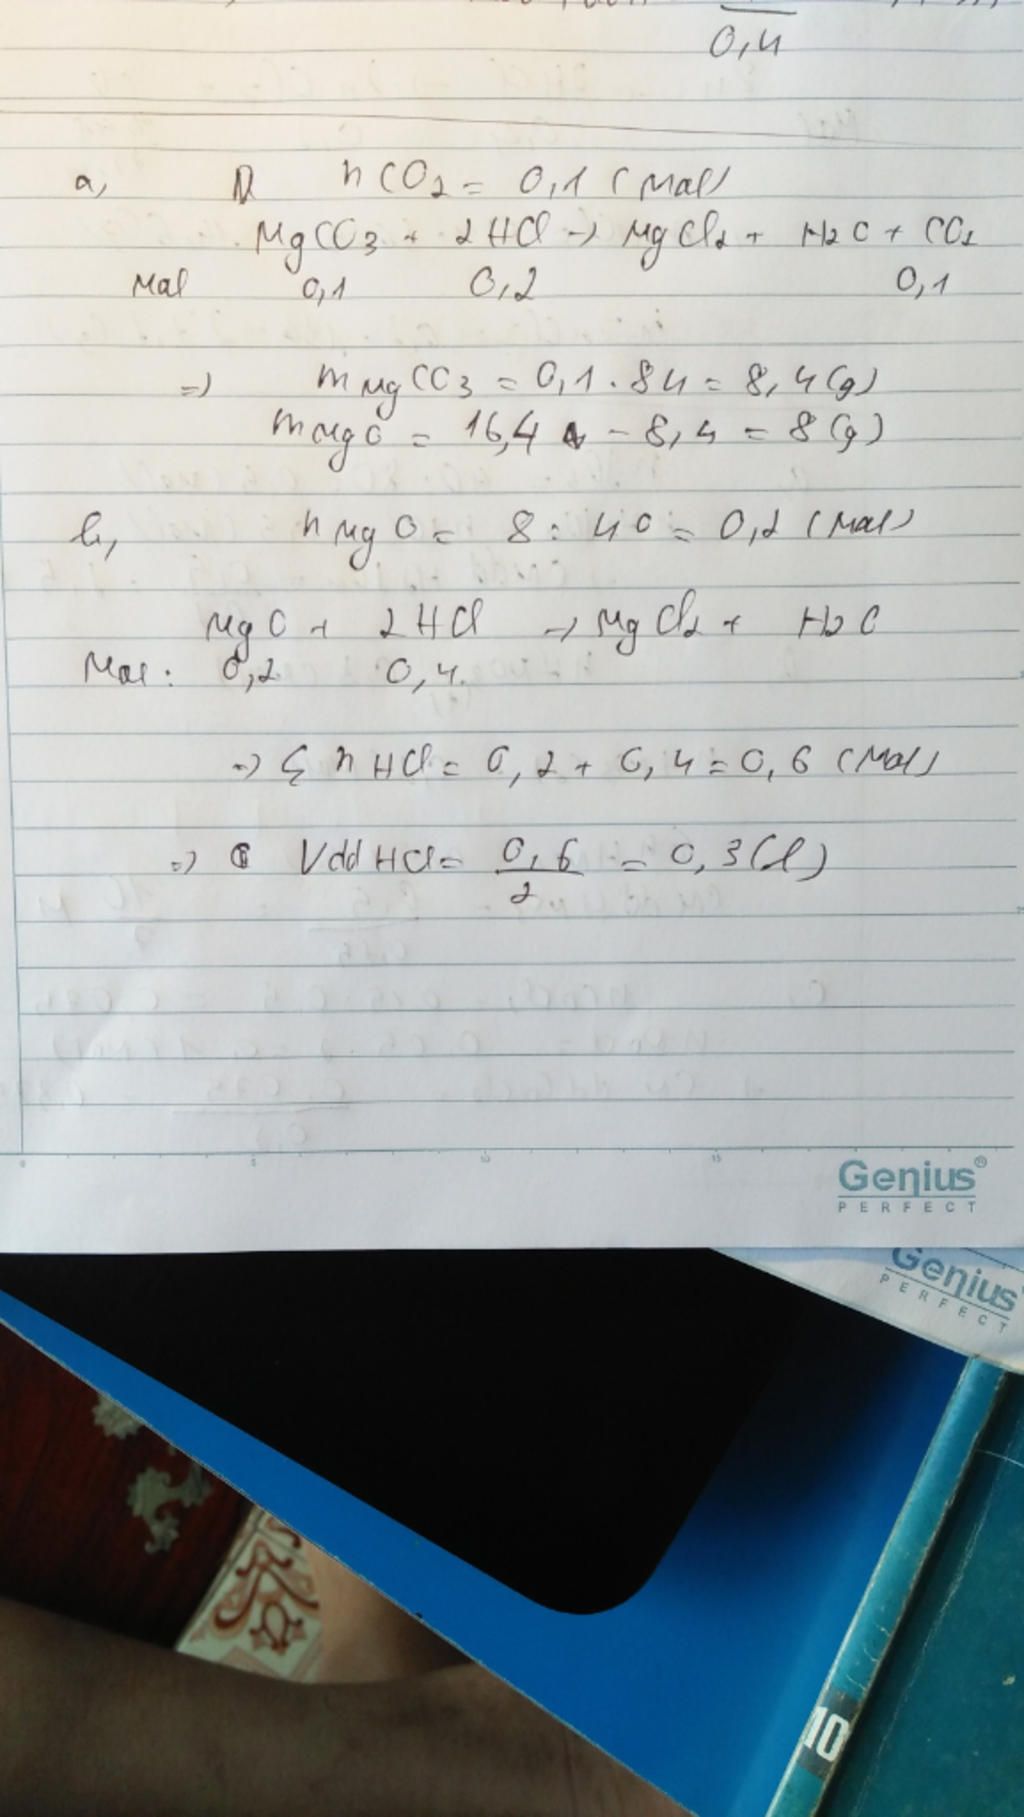 0,4
a, nCO2 = 0,1 (mol)
MgCO3 + 2HCl -> MgCl2 + H2O + CO2
Mol 0,1 0,2 0,1
=) mMgCO3 = 0,1 . 84 = 8,4 (g)
mMgO = 16,4 - 8,4 = 8 (g)
b, nMgO = 8 : 40 = 0,2 (mol)
MgO + 2HCl -> MgCl2 + H2O
Mol: 0,2 0,4.
=) Σ nHCl = 0,2 + 0,4 = 0,6 (mol)
=) Vdd HCl = 0,6/2 = 0,3 (l)
0 5 10 15
Genius®
PERFECT
Genius
PERFECT
10